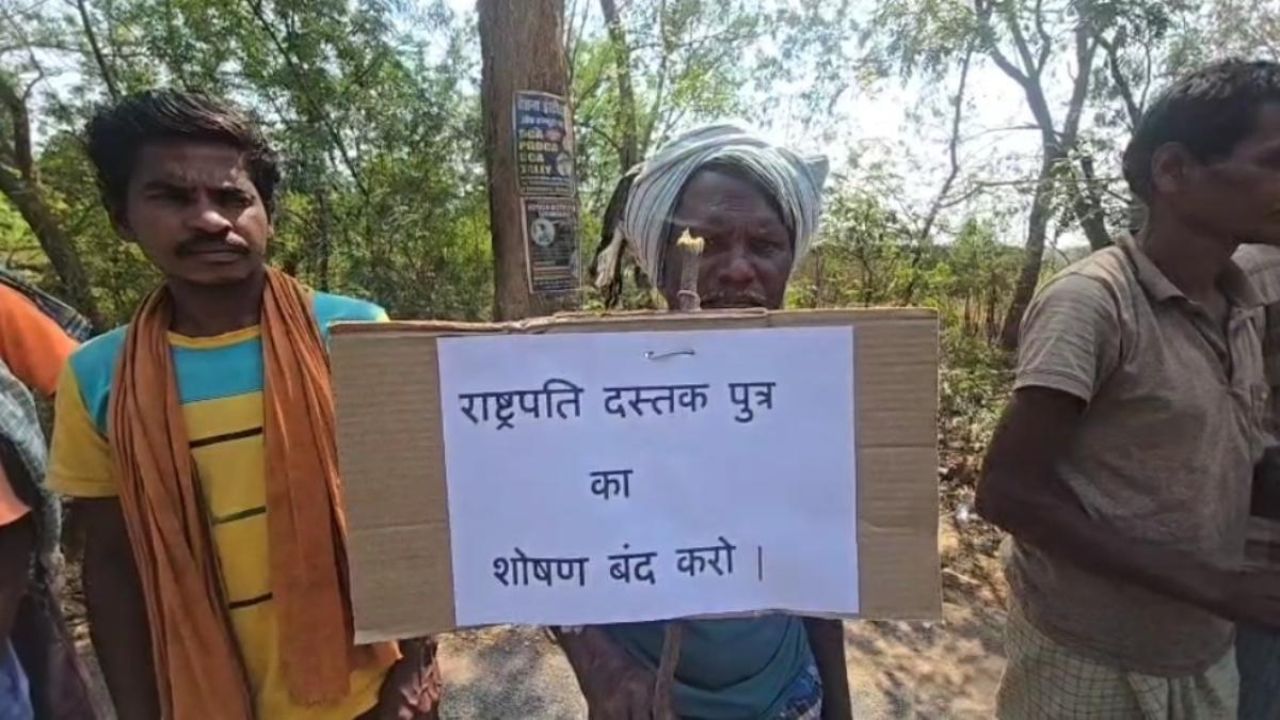 राष्ट्रपति दस्तक पुत्र
का
शोषण बंद करो |
PGDCA